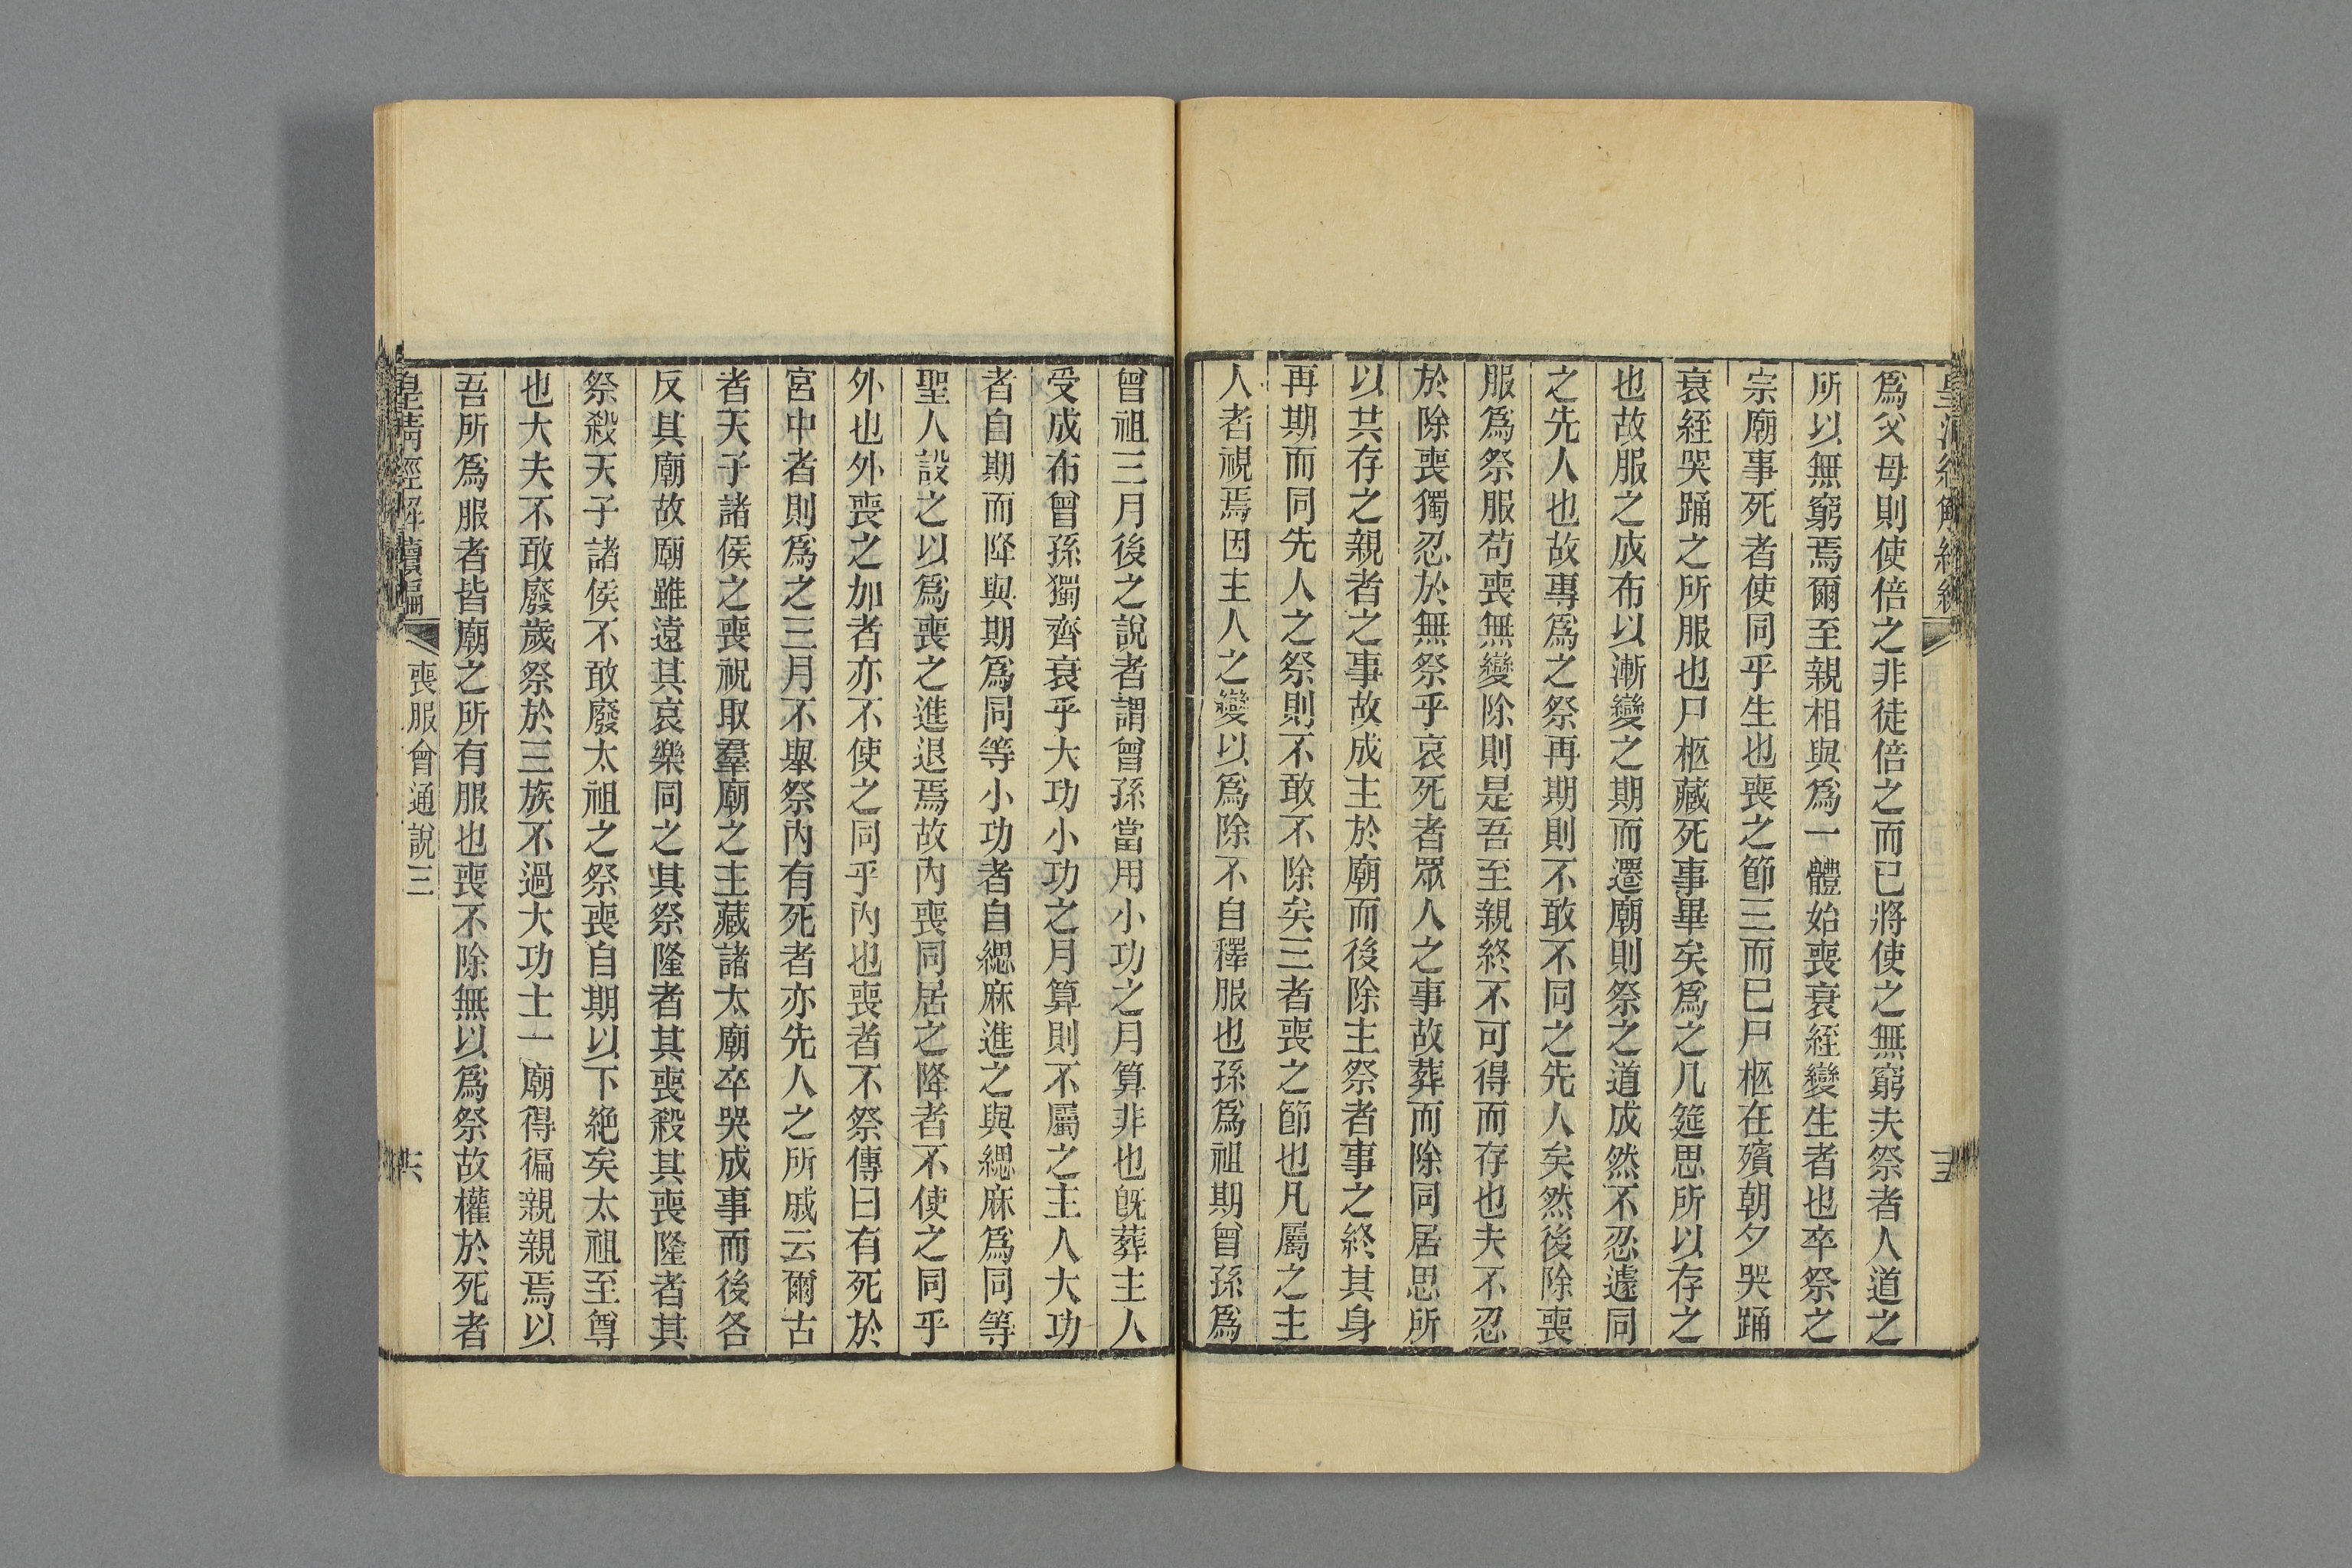 爲父母則使倍之非徒倍之而已將使之無窮夫祭者人道之
所以無窮焉爾至親相與爲一體始喪衰絰變生者也卒祭之
宗廟事死者使同乎生也喪之節三而已尸柩在殯朝夕哭踊
衰絰哭踊之所服也尸柩藏死事畢矣爲之几筵思所以存之
也故服之成布以漸變之期而遷廟則祭之道成然不忍遽同
之先人也故專爲之祭再期則不敢不同之先人矣然後除喪
服爲祭服苟喪無變除則是吾至親終不可得而存也夫不忍
於除喪獨忍於無祭乎哀死者眾人之事故葬而除同居思所
以其存之親者之事故成主於廟而後除主祭者事之終其身
再期而同先人之祭則不敢不除矣三者喪之節也凡屬之主
人者視焉因主人之變以爲除不自釋服也孫爲祖期曾孫爲
曾祖三月後之說者謂曾孫當用小功之月算非也旣葬主人
受成布曾孫獨齊衰乎大功小功之月算則不屬之主人大功
者自期而降與期爲同等小功者自緦麻進之與緦麻爲同等
聖人設之以爲喪之進退焉故內喪同居之降者不使之同乎
外也外喪之加者亦不使之同乎內也喪者不祭傳曰有死於
宮中者則爲之三月不舉祭內有死者亦先人之所戚云爾古
者天子諸侯之喪祝取羣廟之主藏諸太廟卒哭成事而後各
反其廟故廟雖遠其哀樂同之其祭隆者其喪殺其喪隆者其
祭殺天子諸侯不敢廢太祖之祭喪自期以下絶矣太祖至尊
也大夫不敢廢歲祭於三族不過大功士一廟得徧親親焉以
吾所爲服者皆廟之所有服也喪不除無以爲祭故權於死者
皇清經解續編 喪服會通說三